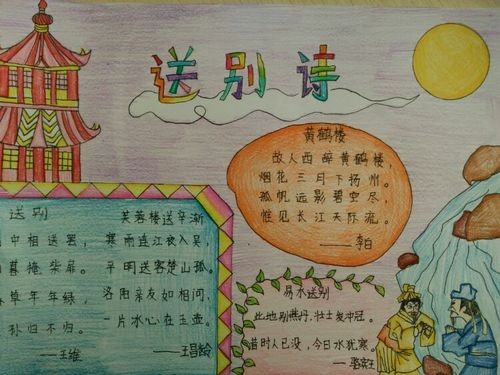 送别诗
黄鹤楼
故人西辞黄鹤楼，
烟花三月下扬州。
孤帆远影碧空尽，
惟见长江天际流。
——李白
送别
中相送罢，
暮掩柴扉。
草年年绿，
孙归不归。
——王维
芙蓉楼送辛渐
寒雨连江夜入吴，
平明送客楚山孤。
洛阳亲友如相问，
一片冰心在玉壶。
——王昌龄
易水送别
此地别燕丹，壮士发冲冠。
昔时人已没，今日水犹寒。
——骆宾王